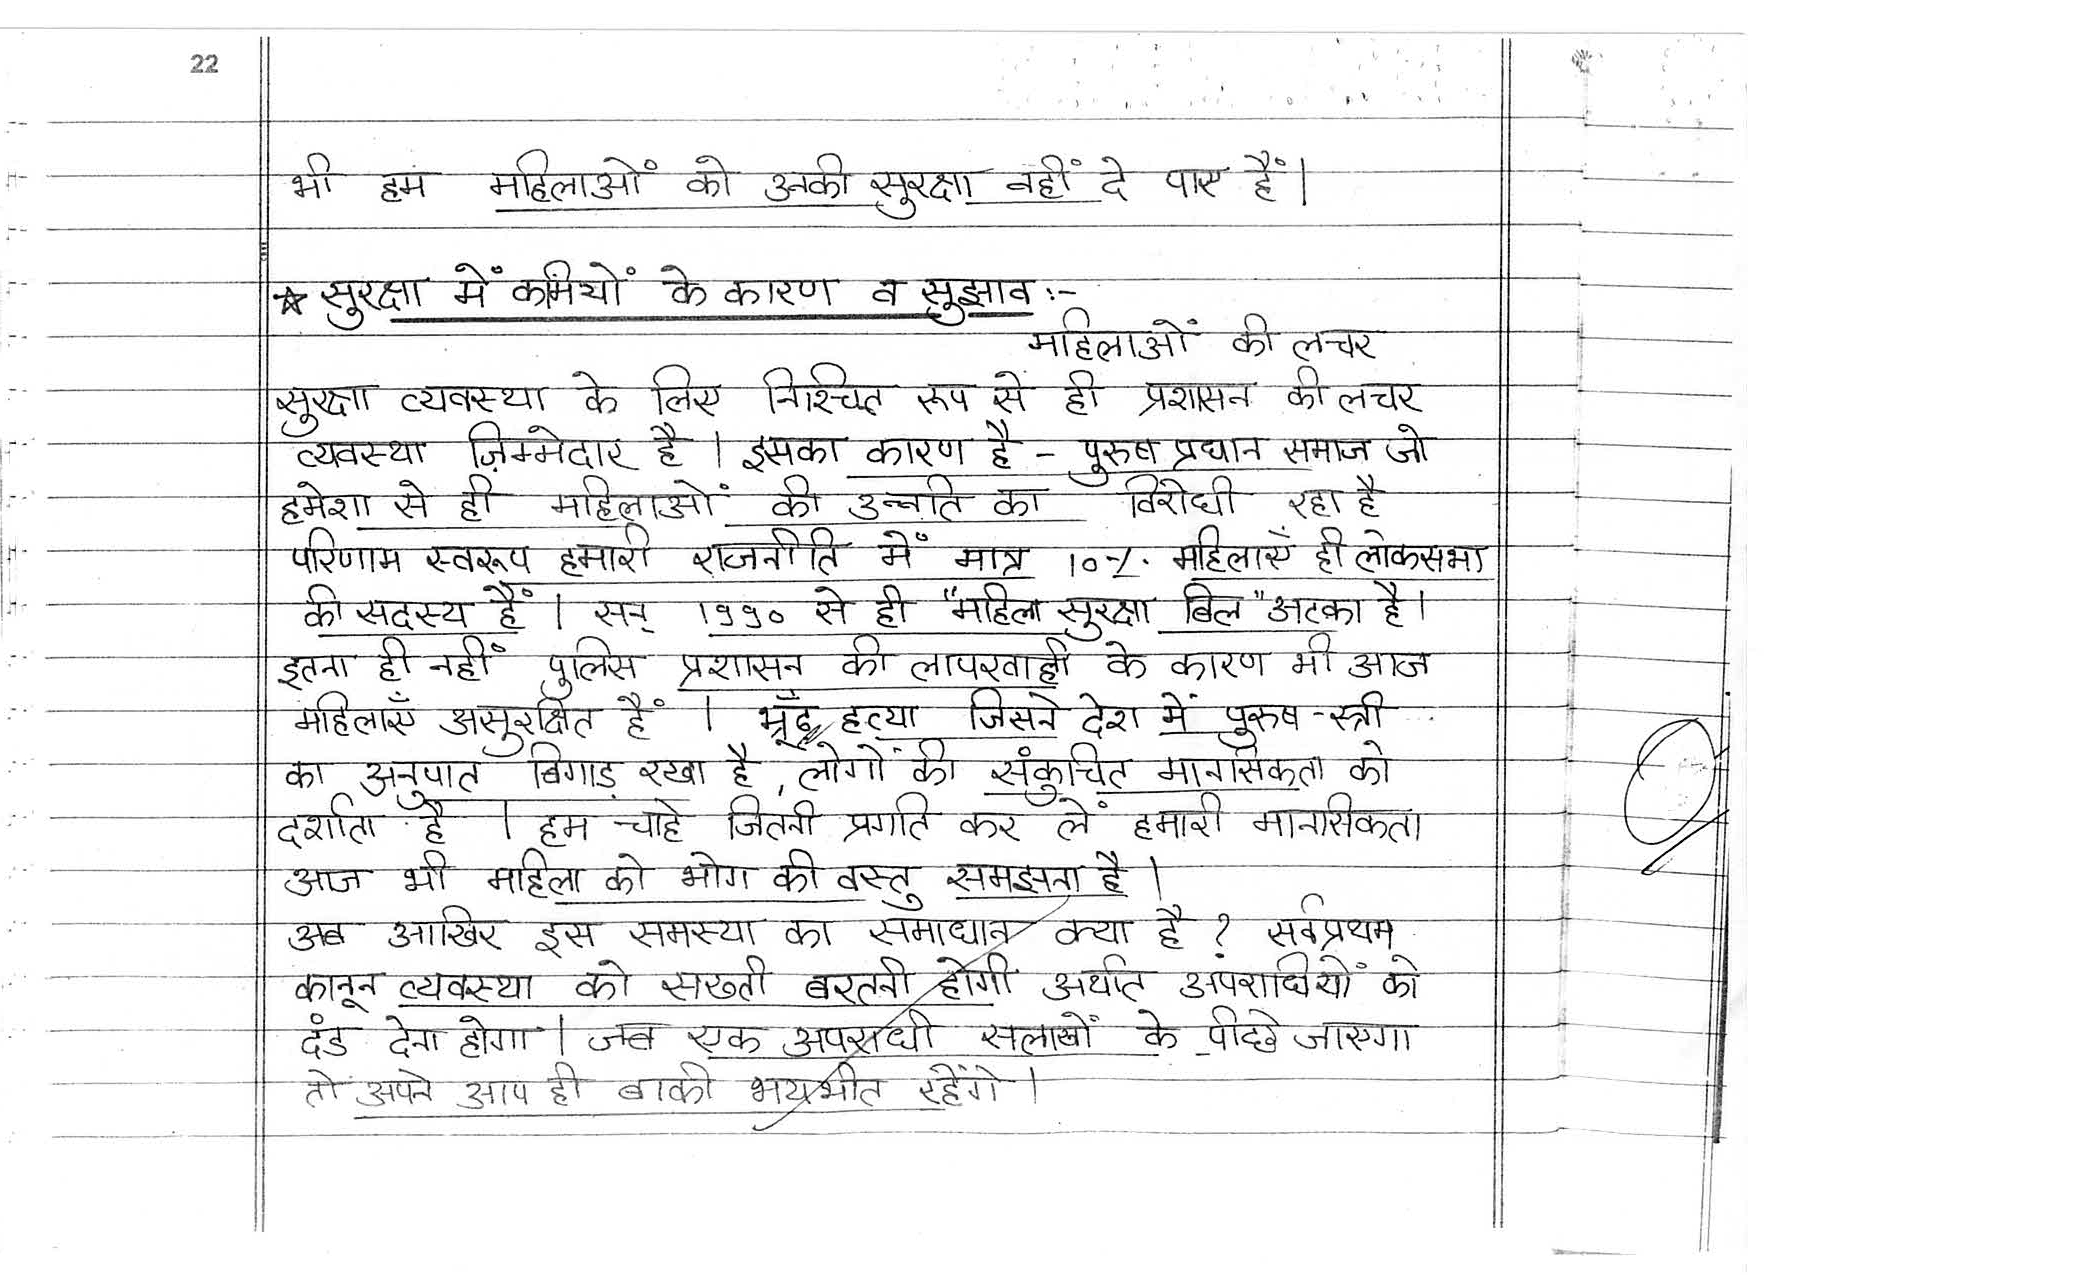 22
भी हम महिलाओं को उनकी सुरक्षा नहीं दे पाए हैं।
☆ सुरक्षा में कमियों के कारण व सुझाव :-
महिलाओं की लचर
सुरक्षा व्यवस्था के लिए निश्चित रूप से ही प्रशासन की लचर
व्यवस्था ज़िम्मेदार है। इसका कारण है - पुरुष प्रधान समाज जो
हमेशा से ही महिलाओं की उन्नति का विरोधी रहा है
परिणाम स्वरूप हमारी राजनीति में मात्र 10%. महिलाएँ ही लोकसभा
की सदस्य हैं। सन् 1990 से ही "महिला सुरक्षा बिल" अटका है।
इतना ही नहीं पुलिस प्रशासन की लापरवाही के कारण भी आज
महिलाएँ असुरक्षित हैं। हत्या जिसने देश में पुरुष-स्त्री
का अनुपात बिगाड़ रखा है, लोगों की संकुचित मानसिकता को
दर्शाता है। हम चाहे जितनी प्रगति कर लें हमारी मानसिकता
आज भी महिला को भोग की वस्तु समझना है।
अब आखिर इस समस्या का समाधान क्या है? सर्वप्रथम
कानून व्यवस्था को सख्ती बरतनी होगी अर्थात अपराधियों को
दंड देना होगा। जब एक अपराधी सलाखों के पीछे जाएगा
तो अपने आप ही बाकी भयभीत रहेंगे।